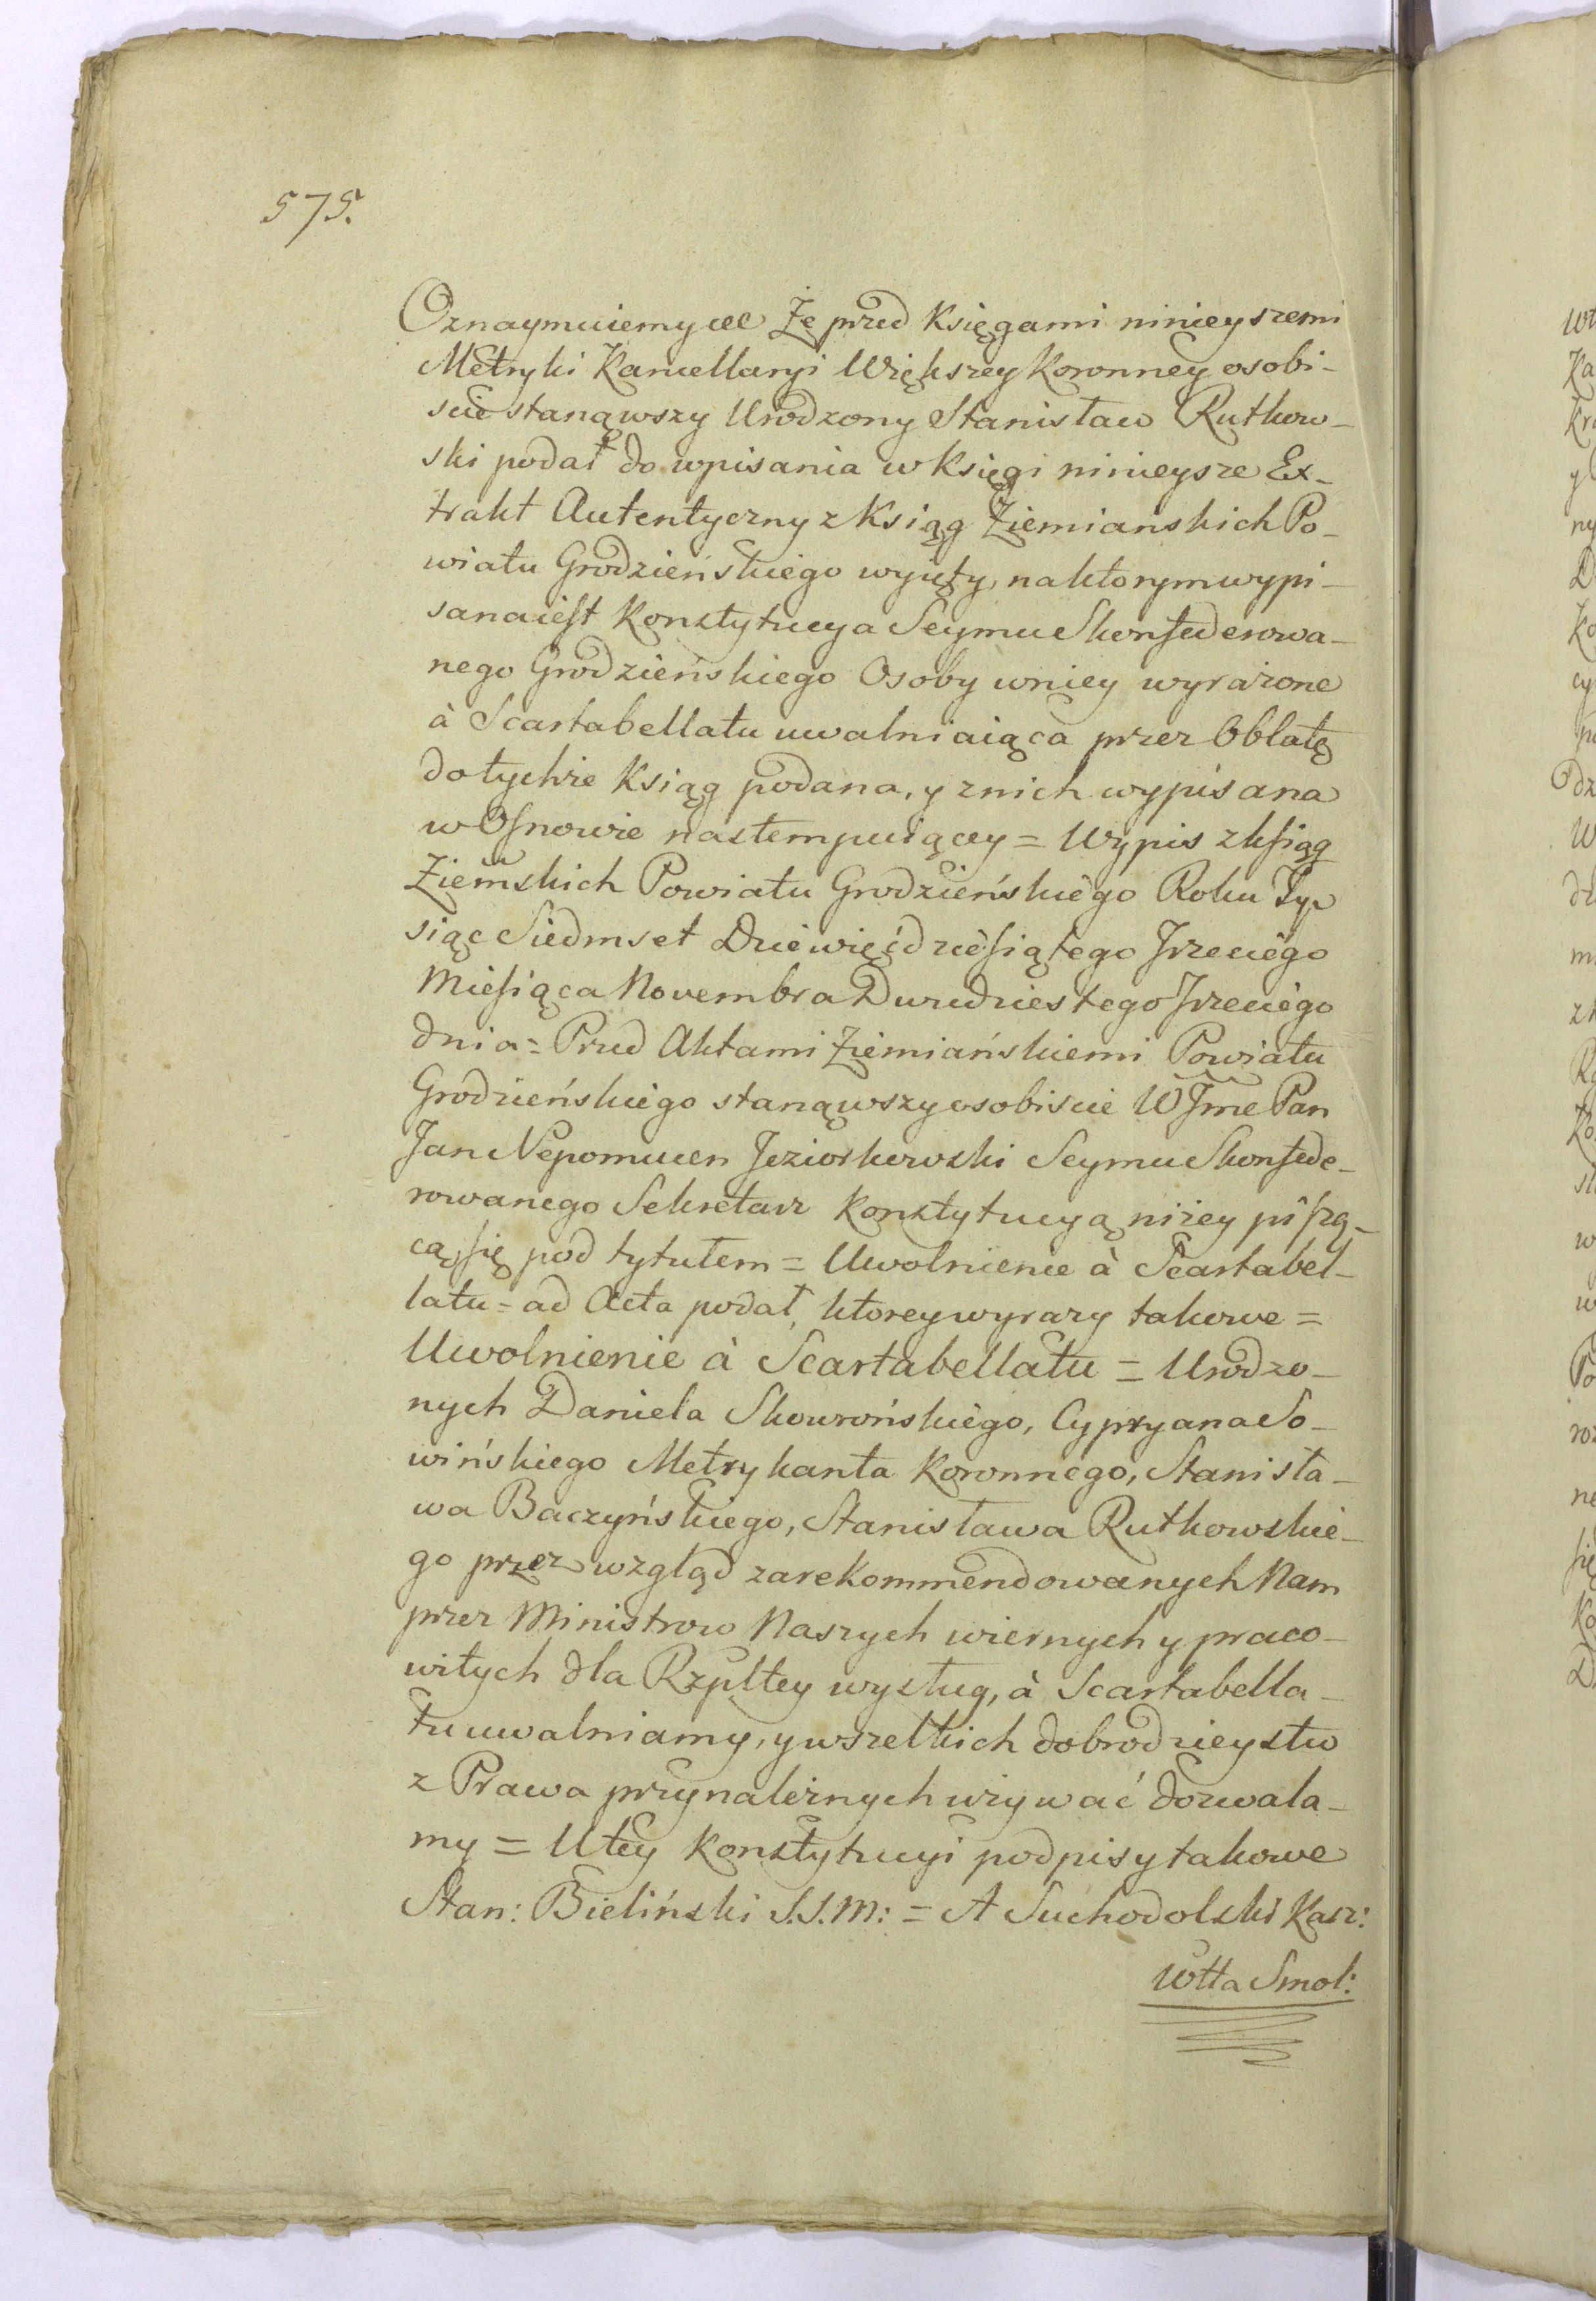 575.
Oznaymuiemy etc Że przed Księgami ninieyszemi
Metryki Kancellaryi Większey Koronney osobi-
scie stanąwszy Urodzony Stanisław Rutkow-
ski podał do wpisania w Księgi ninieysze Ex-
trakt Autentyczny z Ksiąg Ziemianskich Po-
wiatu Grodzieńskiego wyięty, na ktorym wypi-
sana iest Konstytucya Seymu Skonfederowa-
nego Grodzieńskiego Osoby w niey wyrażone
à Scartabellatu uwalniaiąca przez Oblatę
do tychże Ksiąg podana, y z nich wypisana
w Osnowie nastempuiącey = Wypis z ksiąg
Ziemskich Powiatu Grodzieńskiego Roku Ty-
siąc Siedmset Dziewięćdziesiątego Trzeciego
Miesiąca Novembra Dwudziestego Trzeciego
dnia = Przed Aktami Ziemiańskiemi Powiatu
Grodzieńskiego stanąwszy osobiscie W Jmć Pan
Jan Nepomucen Jeziorkowski Seymu Skonfede-
rowanego Sekretarz Konstytucyą niżey piszą-
cą się pod tytułem = Uwolnienie à Scartabel-
latu = ad Acta podał, ktorey wyrazy takowe =
Uwolnienie à Scartabellatu = Urodzo-
nych Daniela Skowrońskiego, Cypryana So-
wińskiego Metrykanta Koronnego, Stanisła-
wa Baczyńskiego, Stanisława Rutkowskie-
go przez wzgląd zarekommendowanych Nam
przez Ministrow Naszych wiernych y praco-
witych dla Rzpltey wysług, à Scartabella-
tu uwalniamy, y wszelkich dobrodzieystw
z Prawa przynależnych używać dozwala-
my = U tey Konstytucyi podpisy takowe
Stan: Bieliński S.S.M: = A Suchodolski Kasz:
Wttа Smol: